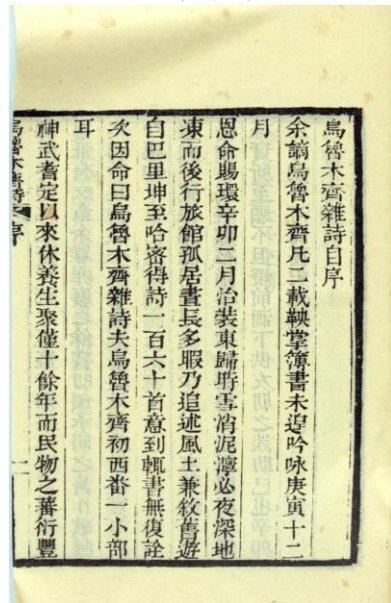 烏魯木齊雜詩自序
余謫烏魯木齊凡二載鞅掌簿書未遑吟咏庚寅十二
月
恩命賜環辛卯二月治裝東歸時雪消泥濘必夜深地
凍而後行旅館孤居晝長多暇乃追述風土兼敘舊遊
自巴里坤至哈密得詩一百六十首意到輒書無復詮
次因命曰烏魯木齊雜詩夫烏魯木齊初西番一小部
耳
神武耆定以來休養生聚僅十餘年而民物之蕃衍豐
烏魯木齊詩 序